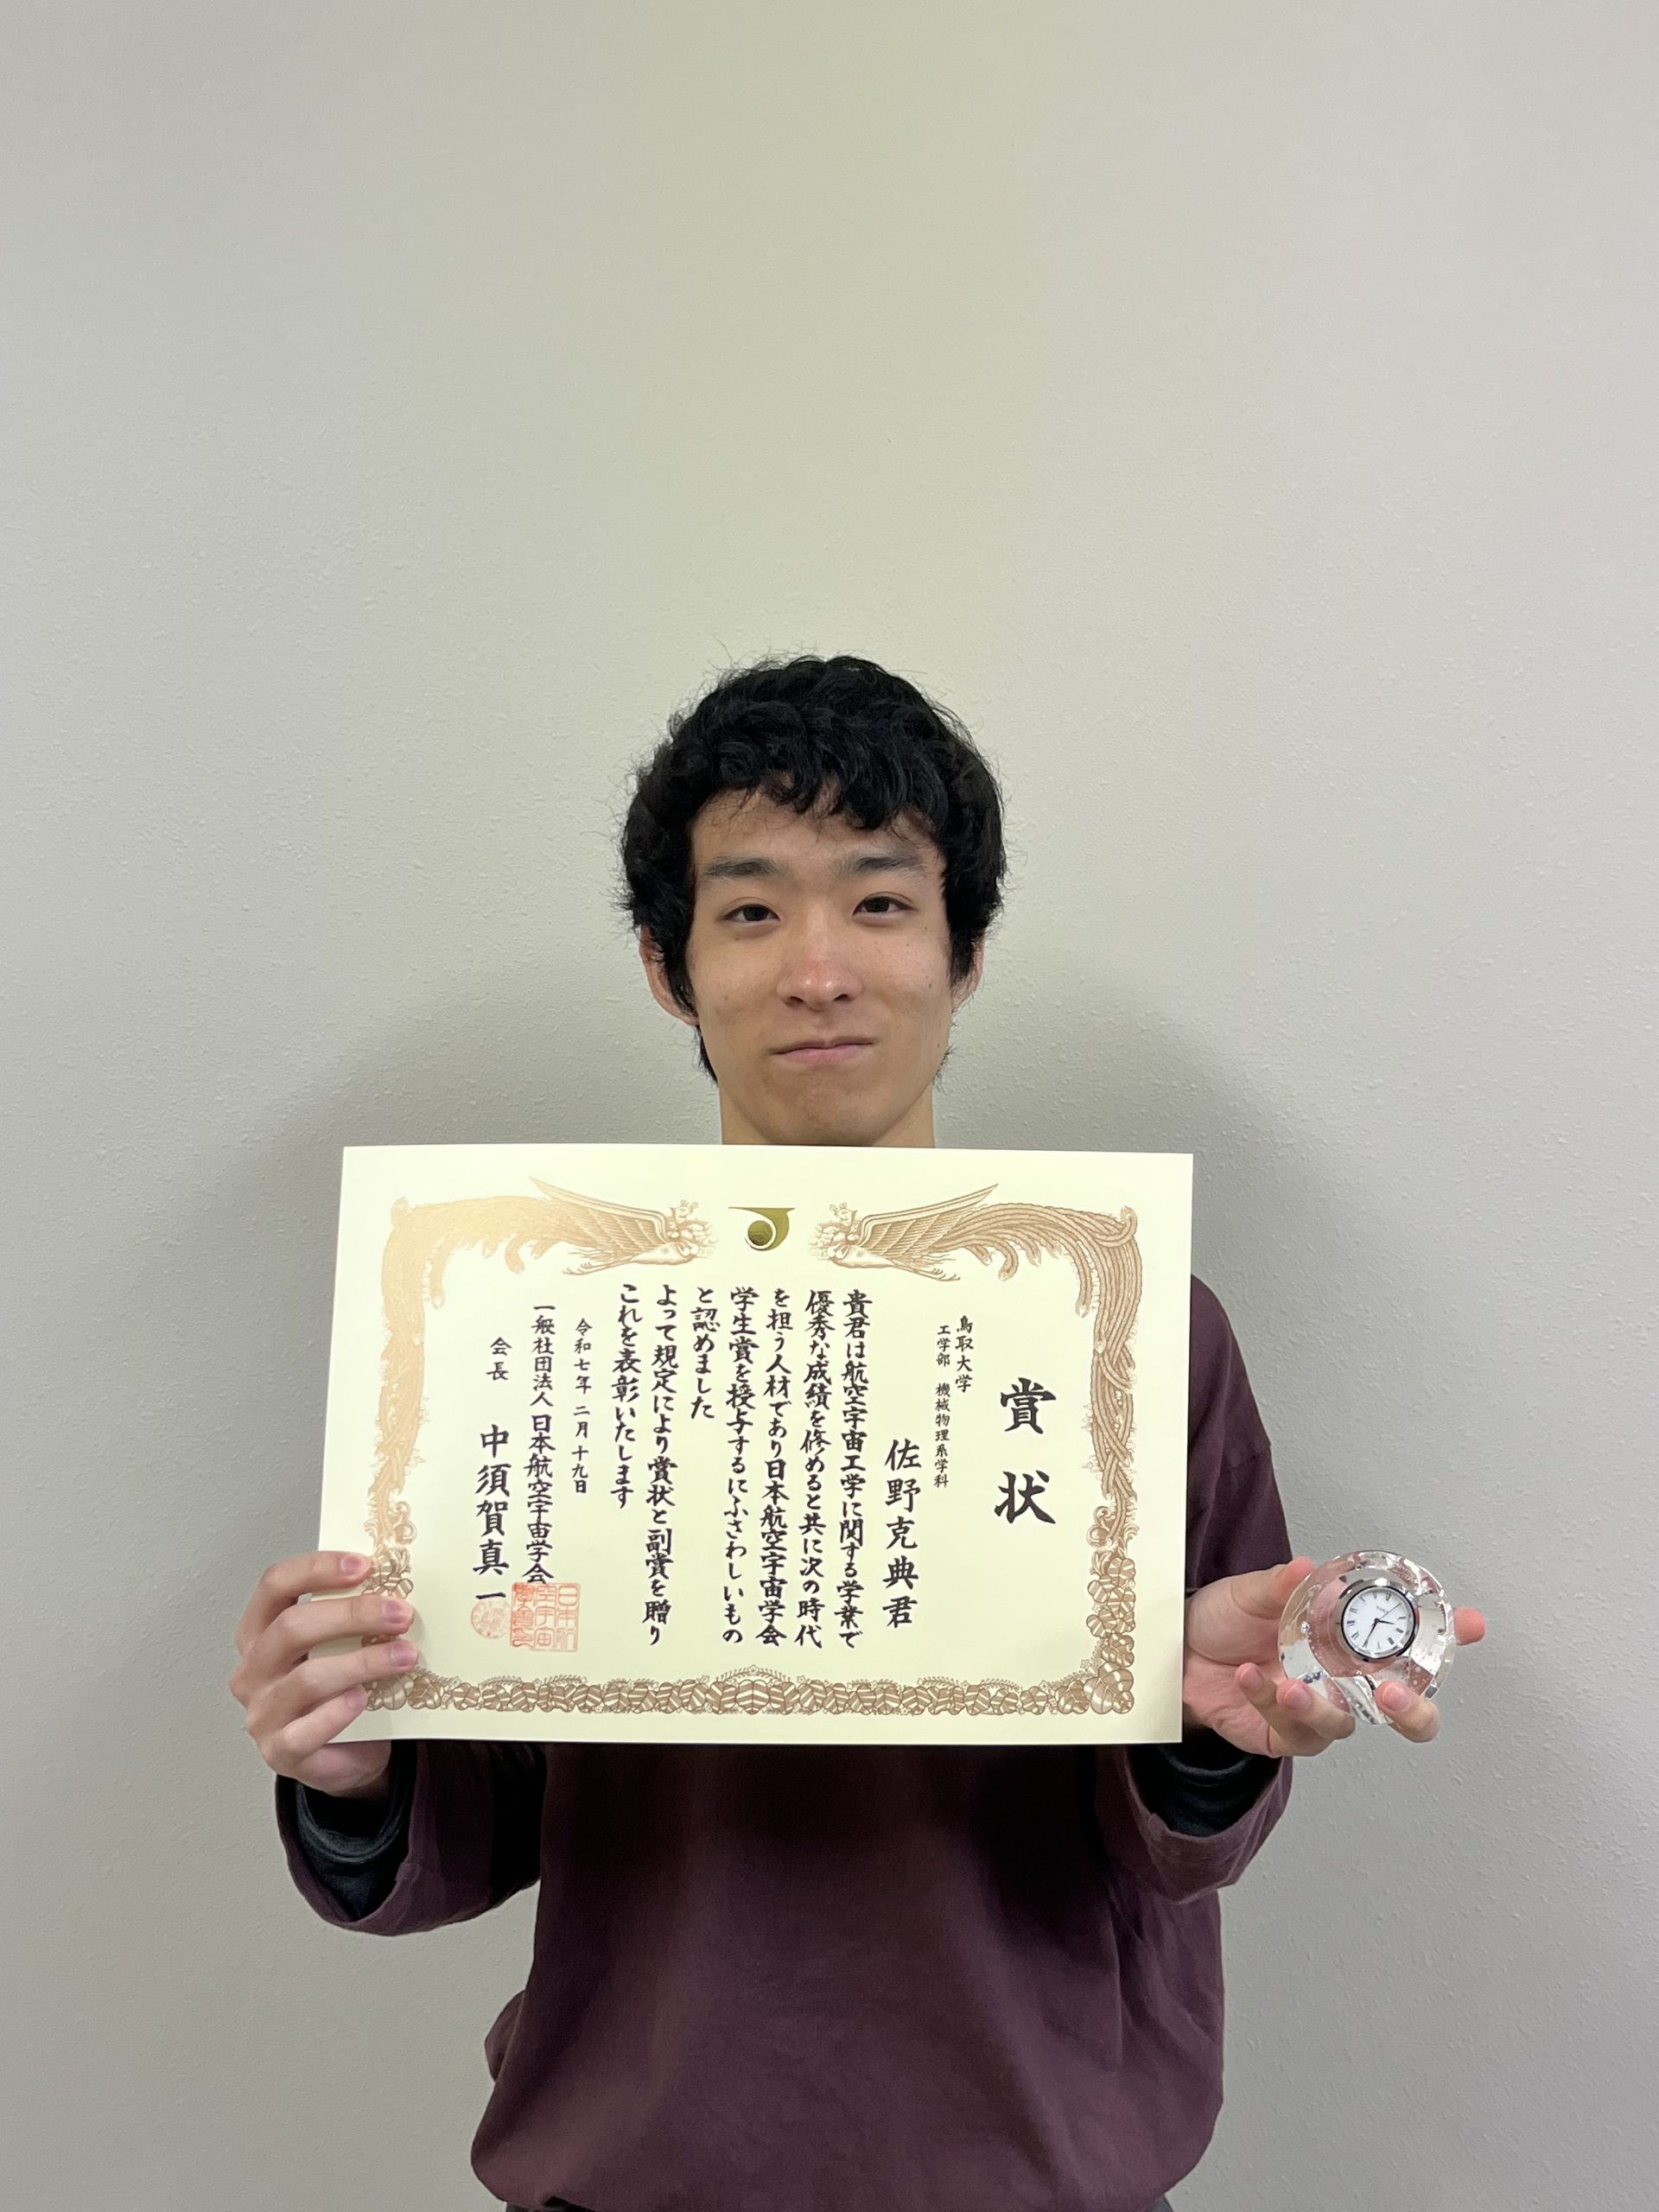 賞状
鳥取大学
工学部 機械物理系学科
佐野克典君
貴君は航空宇宙工学に関する学業で
優秀な成績を修めると共に次の時代
を担う人材であり日本航空宇宙学会
学生賞を授与するにふさわしいもの
と認めました
よって規定により賞状と副賞を贈り
これを表彰いたします
令和七年 二月 十九日
一般社団法人 日本航空宇宙学会
会長 中須賀真一